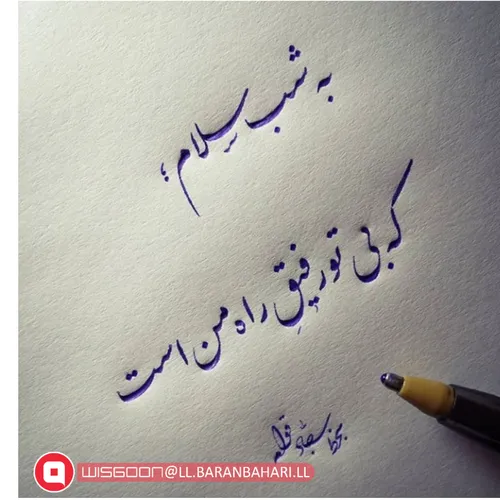 به شب سلام؛
که بی تو رفیقِ راه من است
بخط سجاد
WISGOON@LL.BARANBAHARI.LL